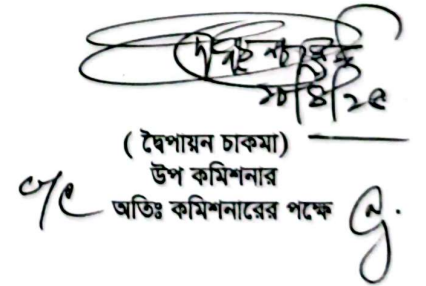 ২৮/৪/২৫
( দ্বৈপায়ন চাকমা)
উপ কমিশনার
অতিঃ কমিশনারের পক্ষে